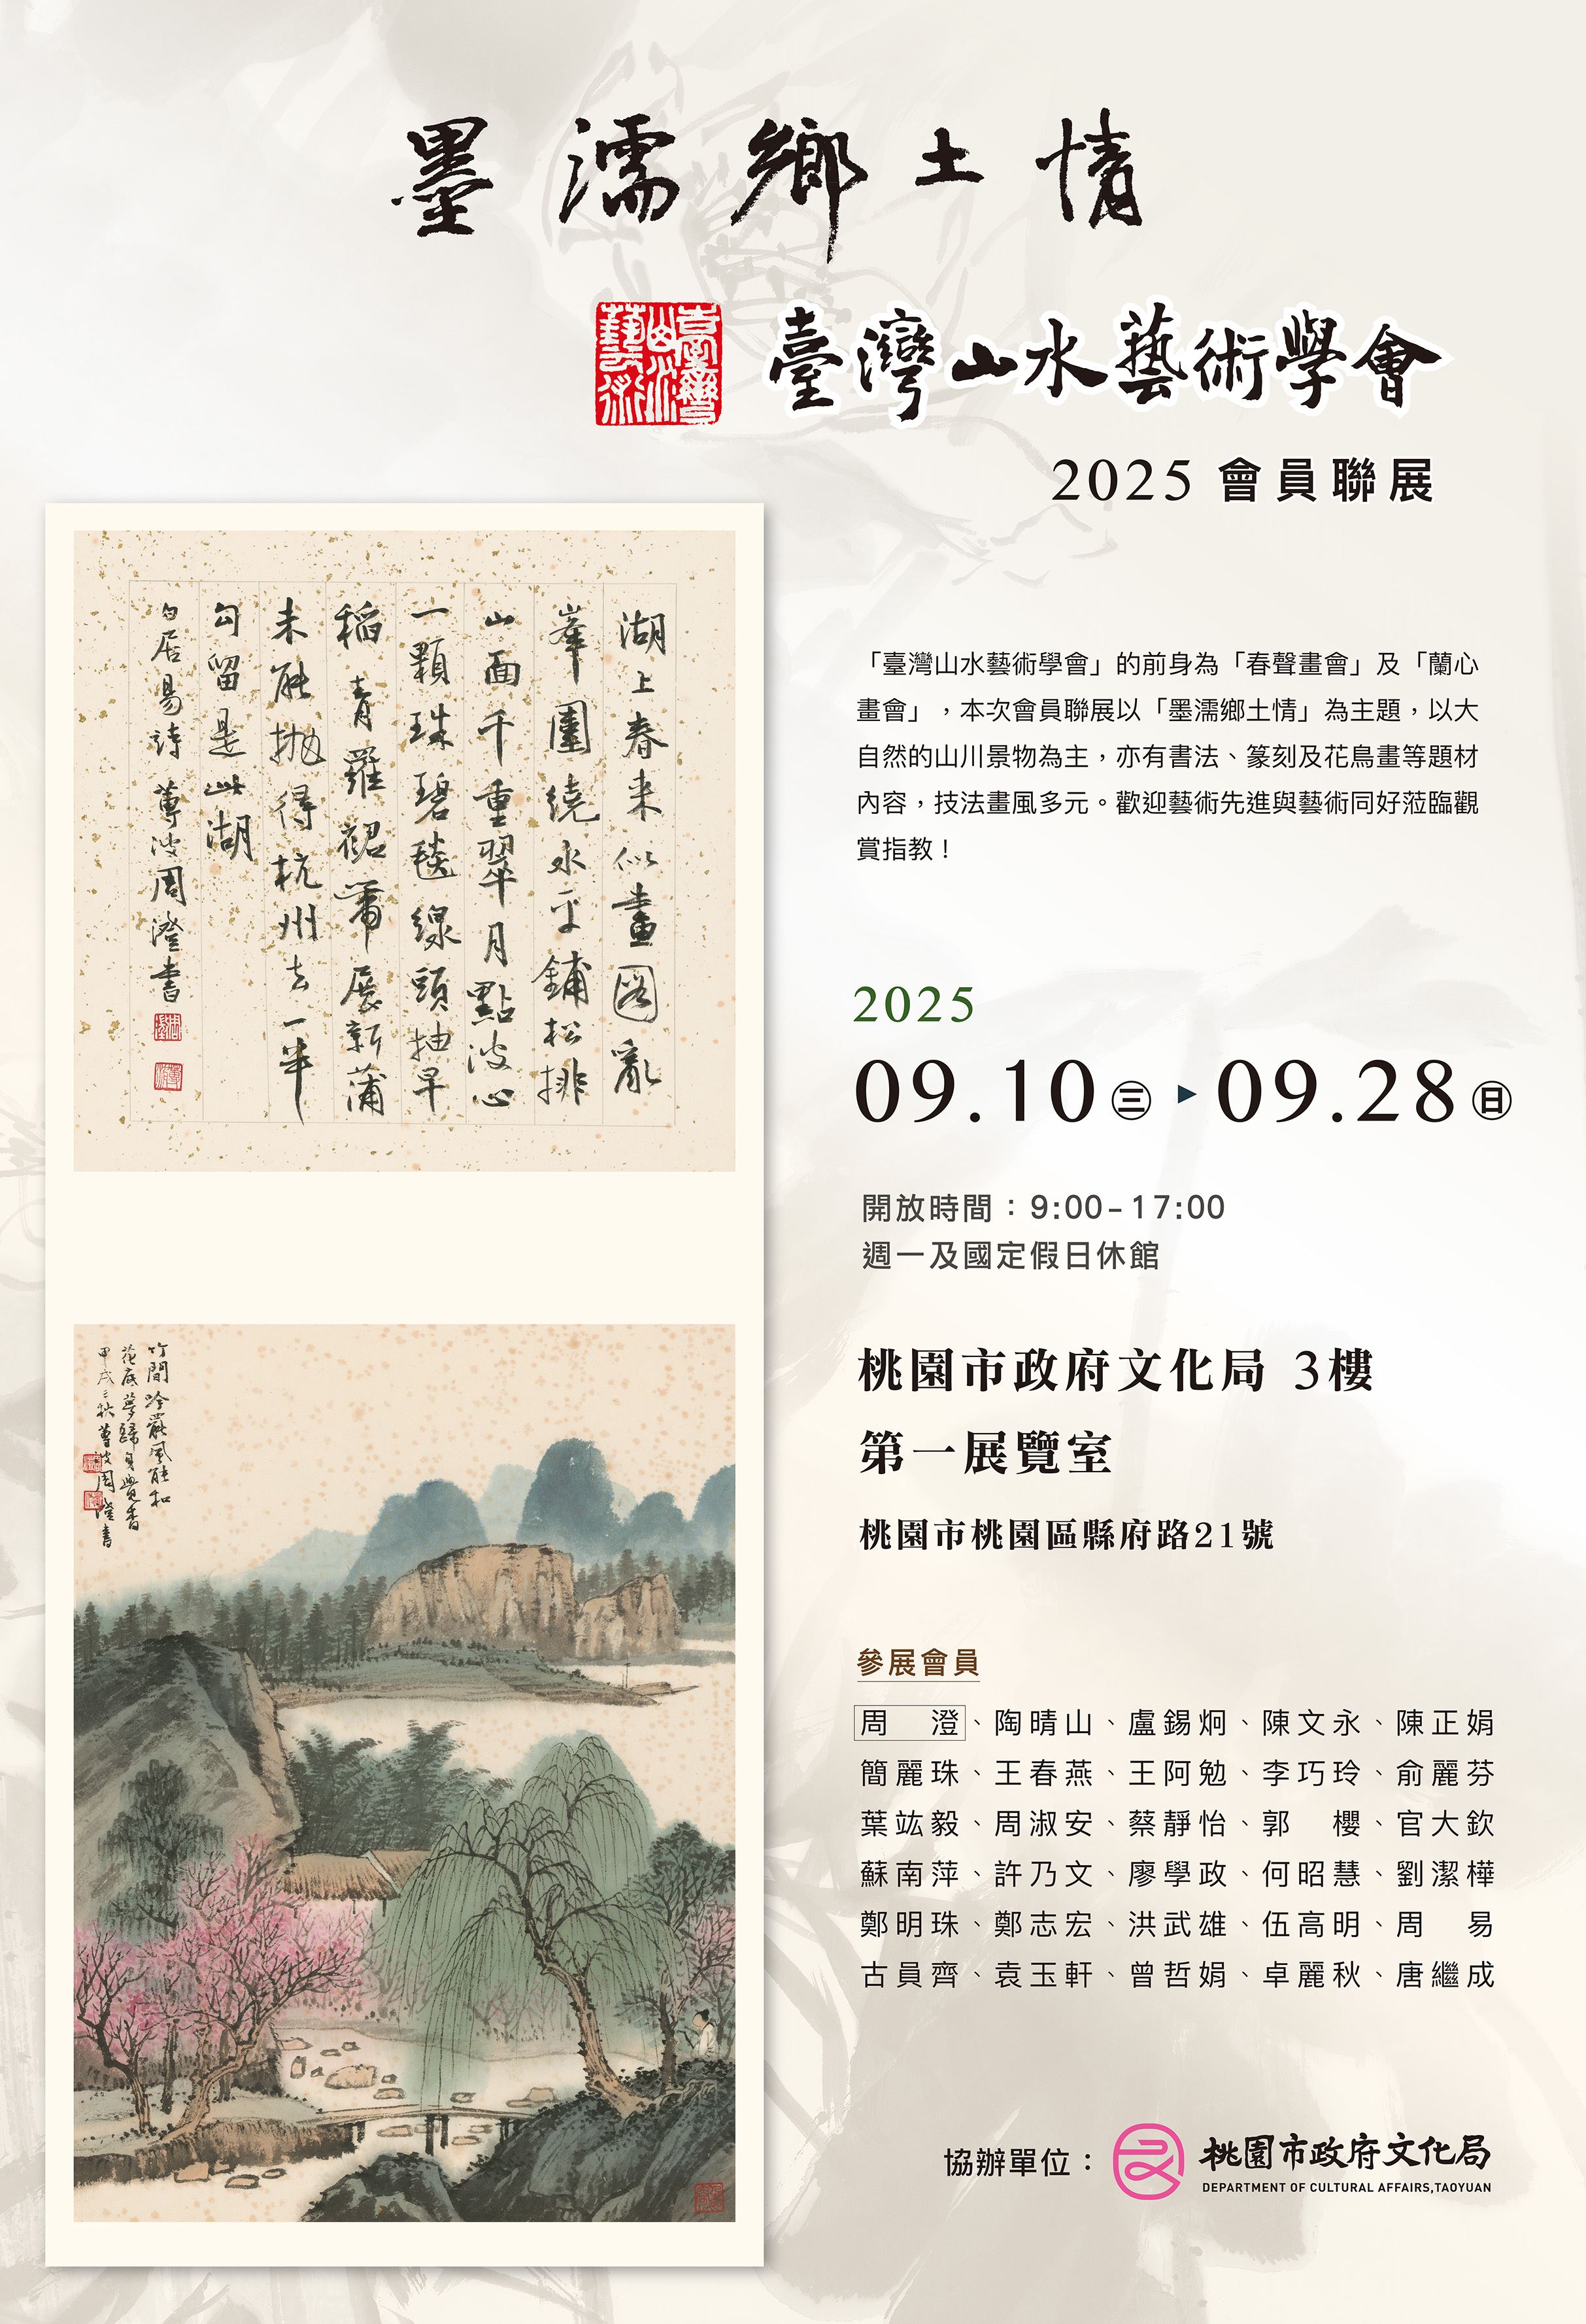 墨濡鄉土情
臺灣山水藝術
臺灣山水藝術學會
2025 會員聯展
湖上春来似畫圖亂
峯圍繞水平鋪松排
山面千重翠月點波心
一顆珠碧毯線頭抽早
稻青羅裙帶展新蒲
未能抛得杭州去一半
勾留是此湖
白居易詩 蓴波周澄書
「臺灣山水藝術學會」的前身為「春聲畫會」及「蘭心
畫會」，本次會員聯展以「墨濡鄉土情」為主題，以大
自然的山川景物為主，亦有書法、篆刻及花鳥畫等題材
內容，技法畫風多元。歡迎藝術先進與藝術同好蒞臨觀
賞指教！
2025
09.10㊂▶09.28㊐
開放時間：9:00–17:00
週一及國定假日休館
竹間吟罷風能和
花底夢歸身覺香
甲戌之秋蓴波周澄書
桃園市政府文化局 3樓
第一展覽室
桃園市桃園區縣府路21號
參展會員
周　澄、陶晴山、盧錫炯、陳文永、陳正娟
簡麗珠、王春燕、王阿勉、李巧玲、俞麗芬
葉竑毅、周淑安、蔡靜怡、郭　櫻、官大欽
蘇南萍、許乃文、廖學政、何昭慧、劉潔樺
鄭明珠、鄭志宏、洪武雄、伍高明、周　易
古員齊、袁玉軒、曾哲娟、卓麗秋、唐繼成
協辦單位：桃園市政府文化局
DEPARTMENT OF CULTURAL AFFAIRS,TAOYUAN